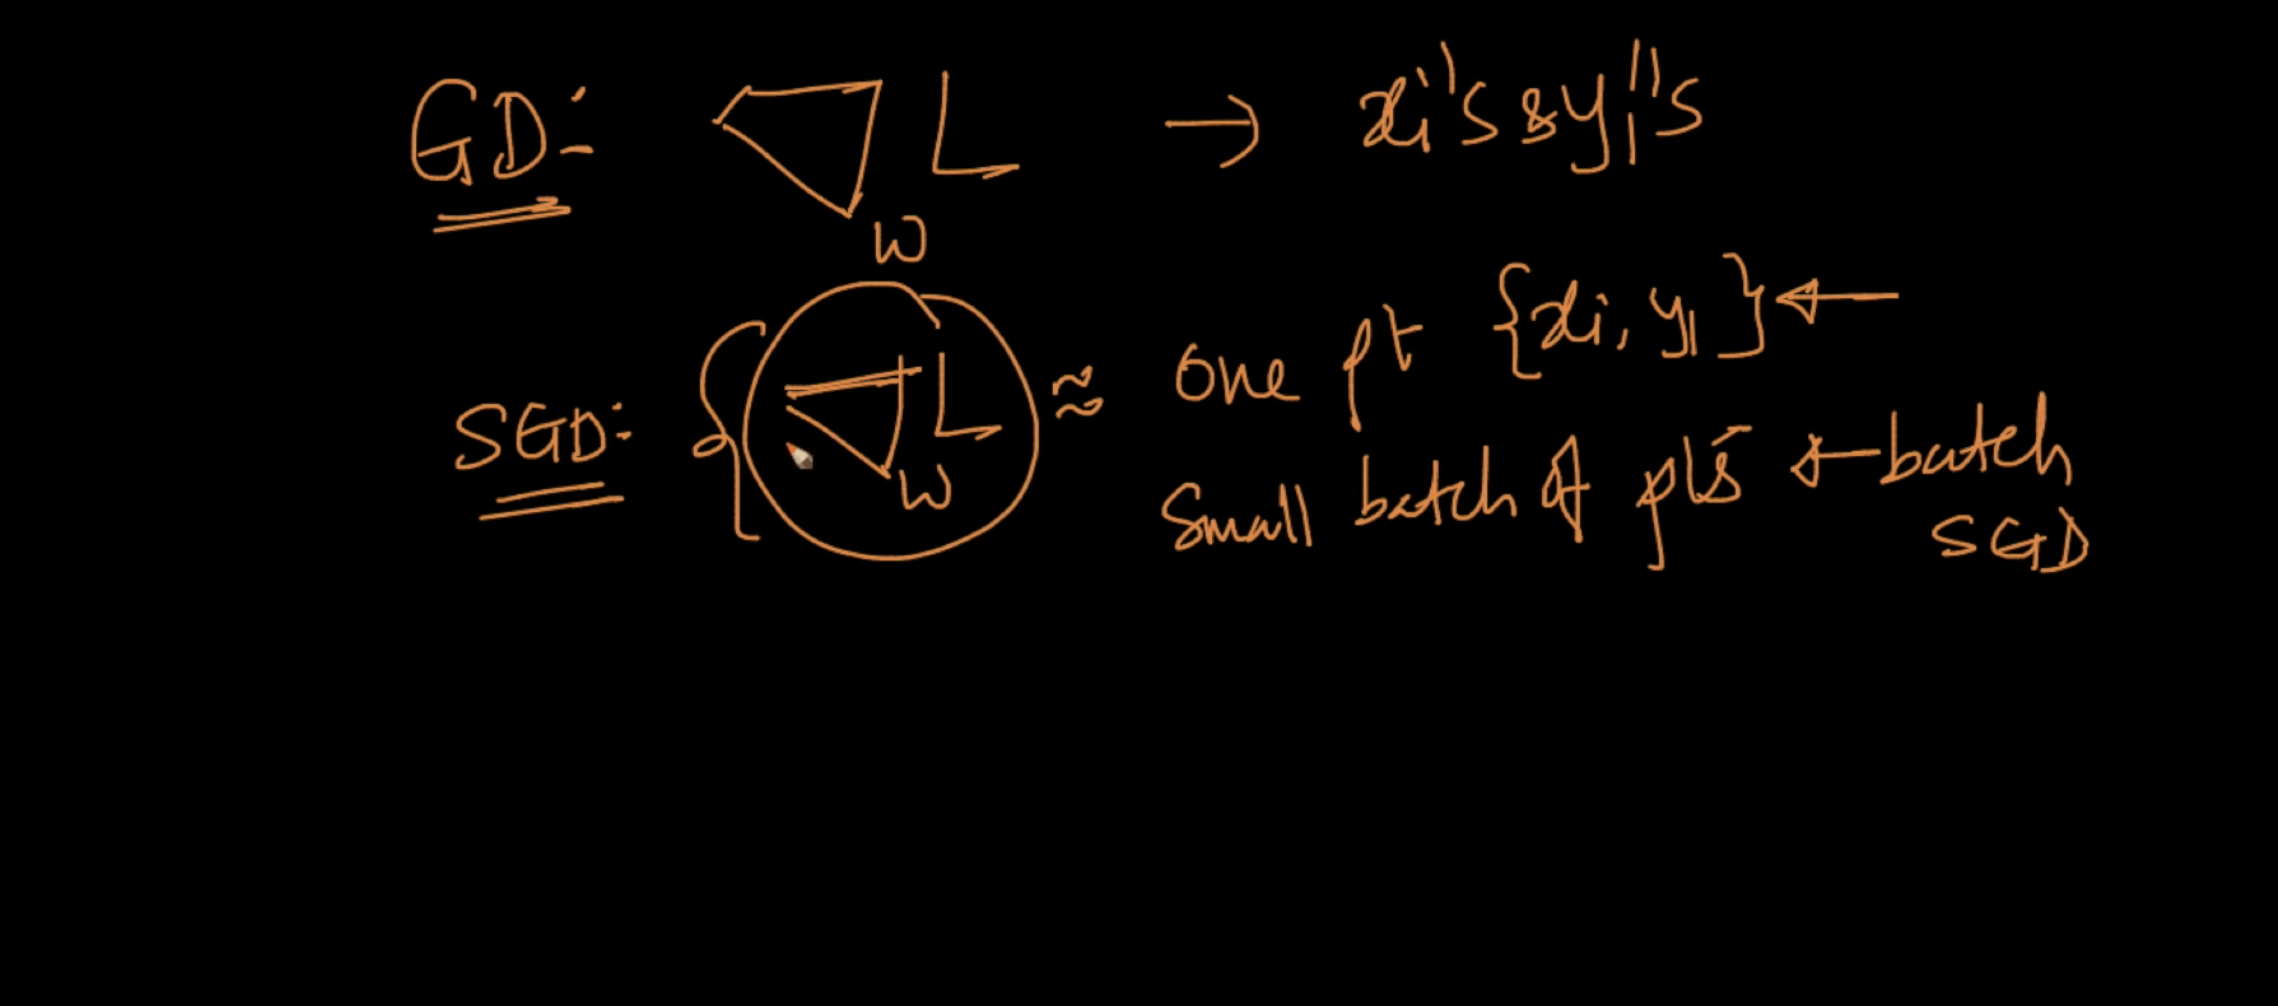 GD:- ∇L → xi's & yi's
w
SGD:- { ∇L ≈ one pt {xi, yi} ←
w
small batch of pts ← batch
SGD